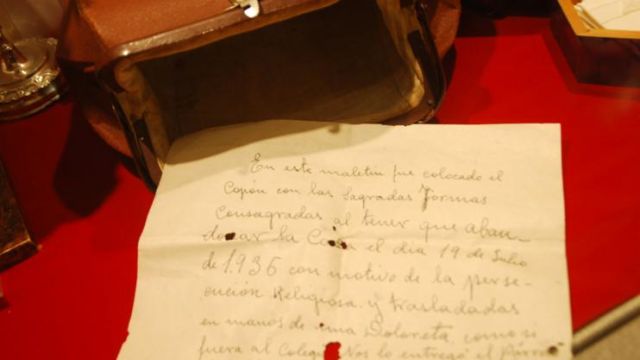 En este maletin fue colocado el
Copón con las Sagradas Formas
Consagradas al tener que aban-
donar la Casa el dia 19 de Julio
de 1.936 con motivo de la perse-
cución Religiosa y trasladadas
en manos de una Doloreta, como si
fuera al Colegio Nos lo entregó el